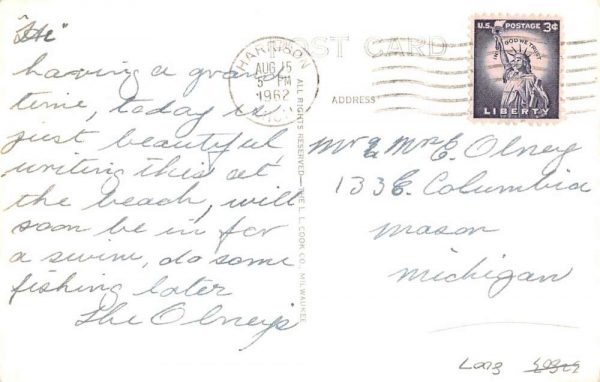 "Hi"
having a grand
time, today is
just beautiful
writing this at
the beach, will
soon be in for
a swim, do some
fishing later
The Olney's
POST CARD
HARRISON
AUG 15
5 PM
1962
ADDRESS
U.S. POSTAGE 3¢
IN GOD WE TRUST
LIBERTY
Mr & Mrs E. Olney
133 E. Columbia
Mason
Michigan
ALL RIGHTS RESERVED—THE L. L. COOK CO., MILWAUKEE